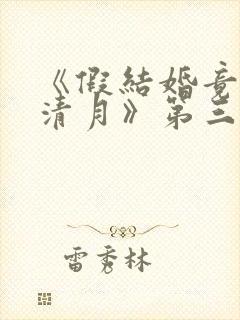 《假結婚竟
清月》第三
雷秀林